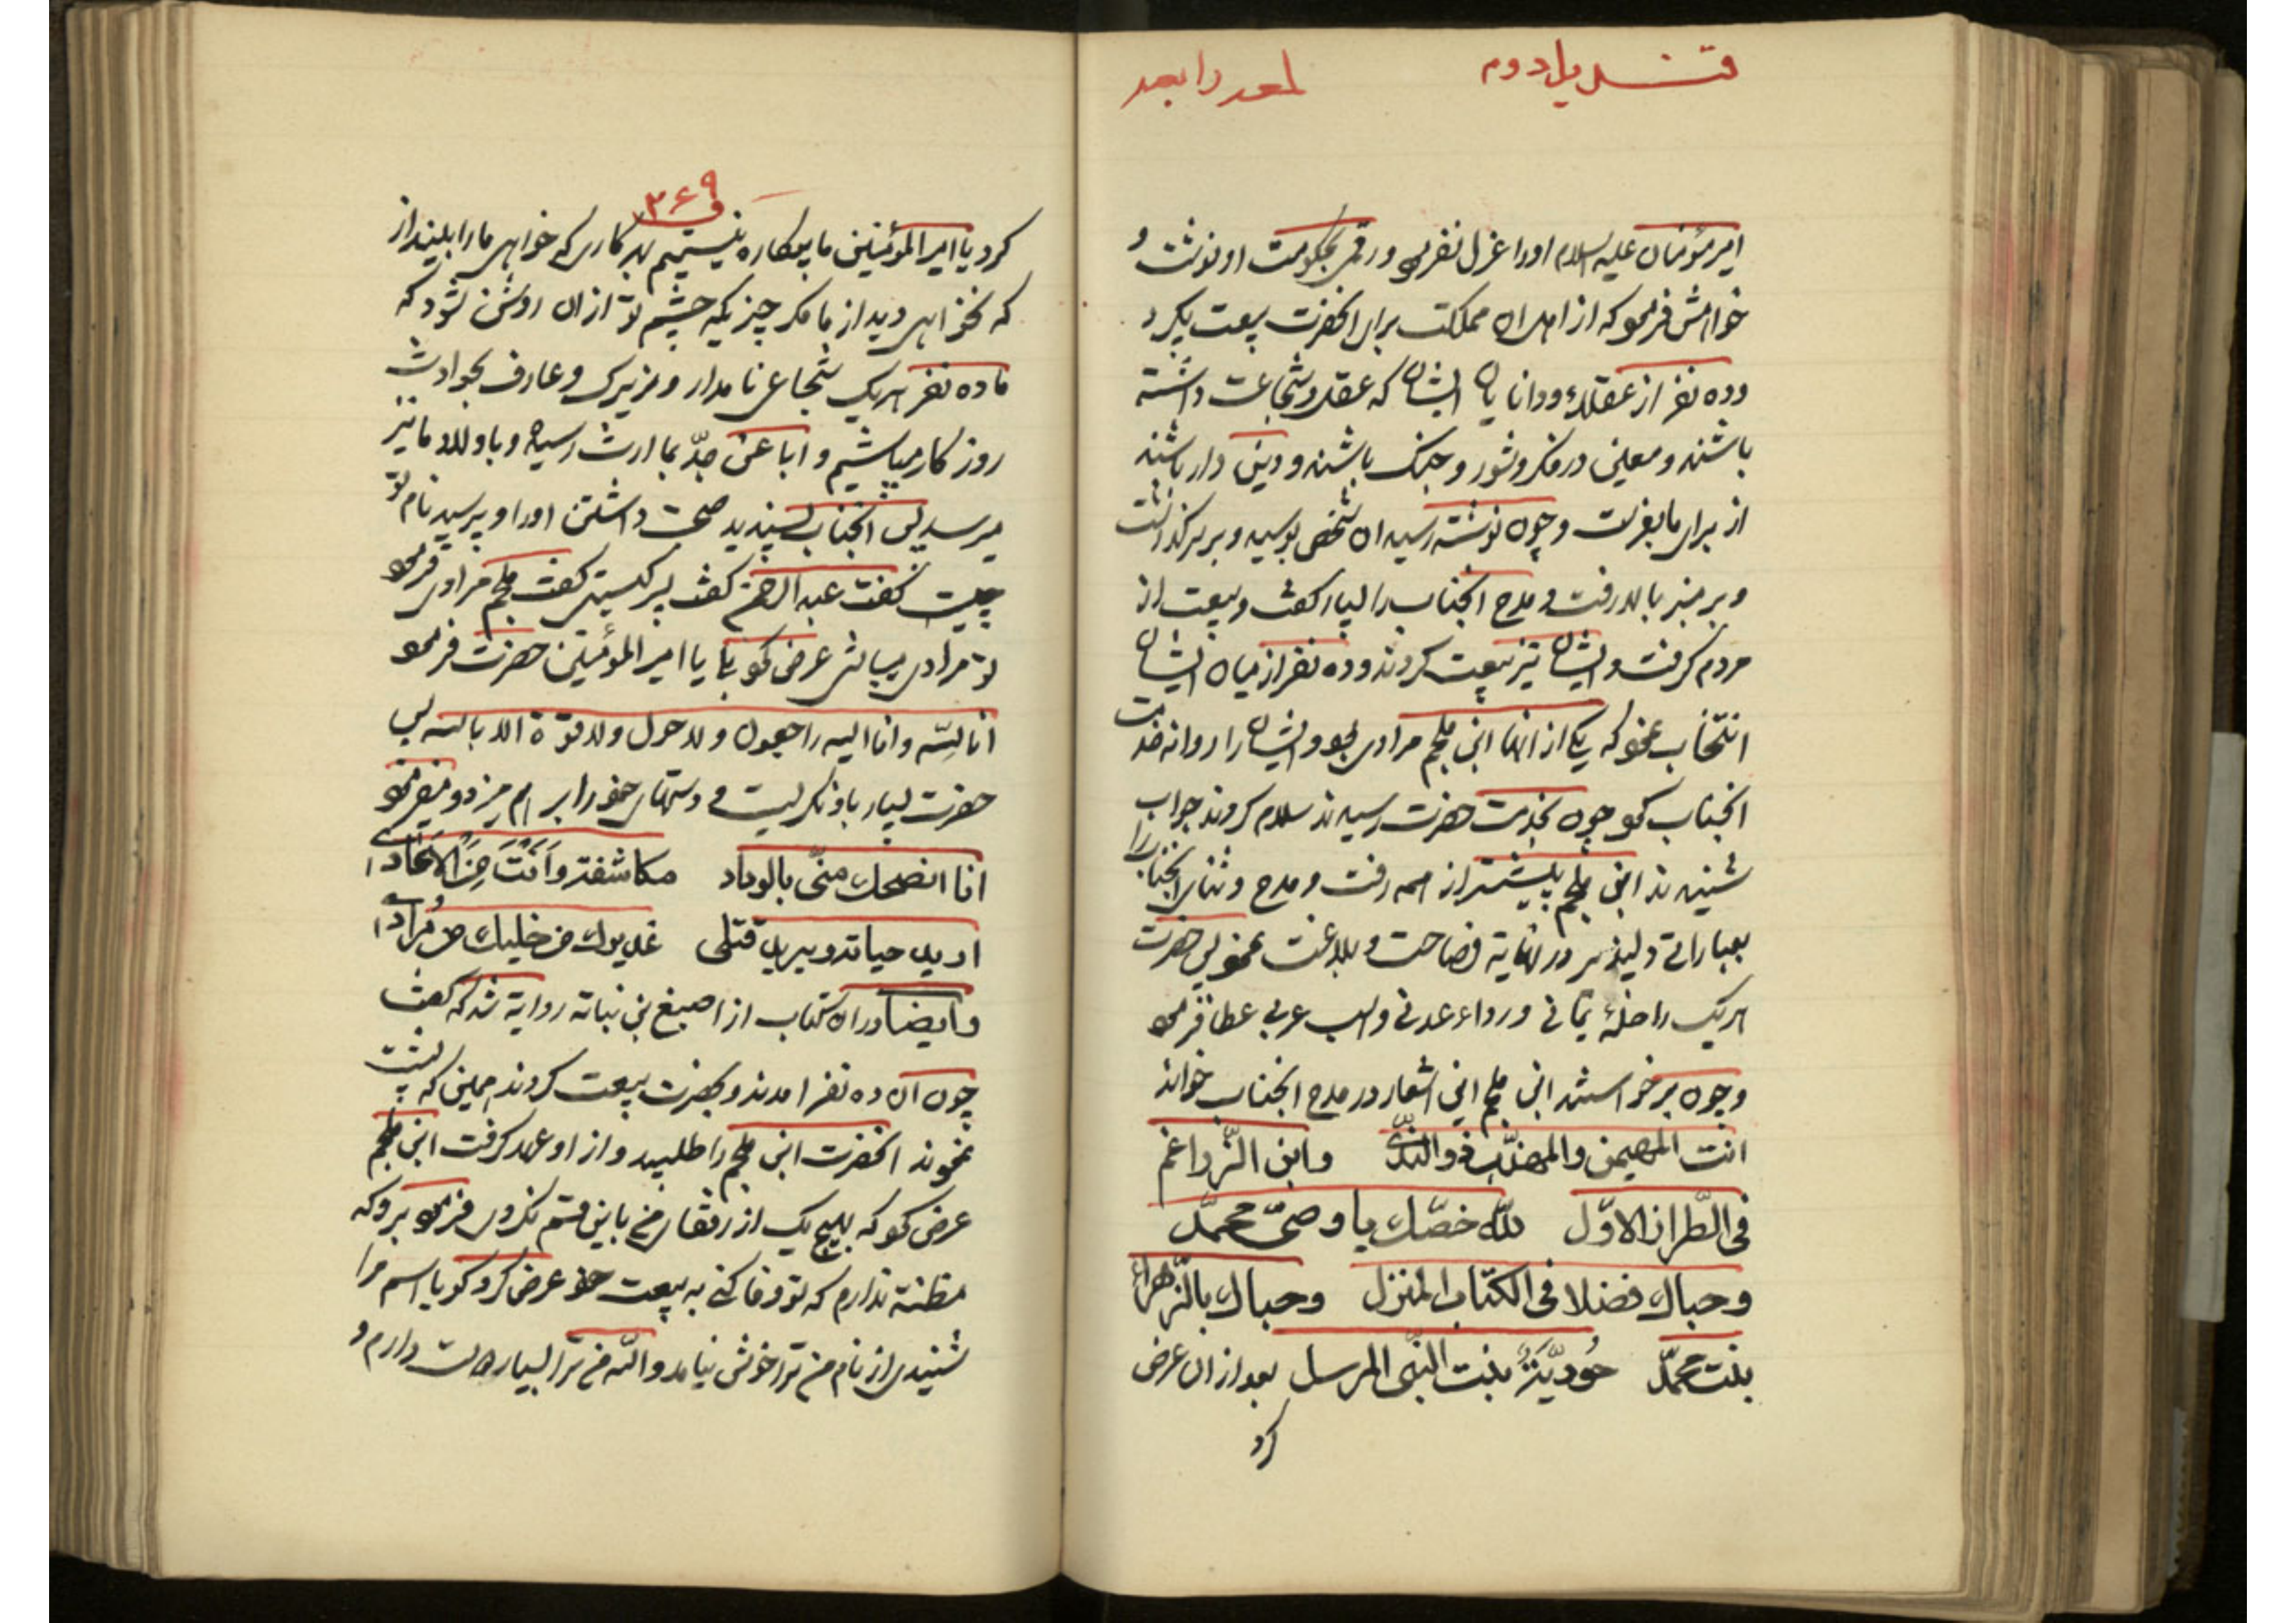 قندیل دوم لمعه رابعه
امیر مؤمنان علیه السلام او را عزل نفرمود و رقمی بحکومت او نوشت و
خواهش فرمود که از اهل ان مملکت برای انحضرت بیعت بگیرد
و ده نفر از عقلاء و دانایان ایشان که عقل و شجاعت داشته
باشند و معین در فکر و شور و جنک باشند و دین دار باشند
از برای ما بفرست و چون نوشته رسید ان شخص بوسید و بر سر گذاشت
و بر منبر بالا رفت و مدح انجناب را بسیار گفت و بیعت از
مردم گرفت و ایشان نیز بیعت کردند و ده نفر از میان ایشان
انتخاب نمود که یکی از انها ابن ملجم مرادی بود و ایشان را روانه خدمت
انجناب نمود چون بخدمت حضرت رسیدند سلام کردند جواب
شنیدند ابن ملجم پیشتر از همه رفت و مدح و ثنای انجناب را
بعباراتی دلپذیر در نهایة فصاحت و بلاغت نمود پس حضرت
هریک را حلهٔ یمانی و رداء عدنی و اسب عربی عطا فرمود
و چون برخواستند ابن ملجم این اشعار در مدح انجناب خواند
انت المهیمن والمهذّب ذو النّدی وابن الضّراغم
فی الطّراز الاوّل للّه خصّک یا وصیّ محمّد
وحباک فضلا فی الکتاب المنزل وحباک بالزّهراء
بنت محمّد حُوریّةٌ بنت النّبی المرسل بعد از ان عرض
کرد
۳۶۹
کرد یا امیر المؤمنین ما بیکاره نیستیم بهر کاری که خواهی ما را بینداز
که نخواهی دید از ما مگر چیزیکه چشم تو از ان روشن شود که
ما ده نفر هریک شجاعی نامدار و زیرک و عارف بحوادث
روزکار میباشیم و ابا عن جدّ بما ارث رسیده و باولاد ما نیز
میرسد پس انجناب پسندید صحبت داشتن او را و پرسید نام تو
چیست گفت عبد الرحمن گفت پسر کیستی گفت ملجم مرادی فرمود
تو مرادی میباشی عرض نمود بلی یا امیر المؤمنین حضرت فرمود
انا للّه و انا الیه راجعون و لا حول و لا قوة الا بالله پس
حضرت بسیار باو نگریست و دستهای خود را بر هم میزد و میفرمود
انا انصحک منّی بالوداد مکاشفة وَاَنْتَ مِنَ الاَعادی
ارید حیاته ویرید قتلی عذیرک من خلیلک من مُرادی
و ایضا در ان کتاب از اصبغ بن نباته روایة شده که گفت
چون ان ده نفر امدند و بحضرت بیعت کردند همین که پشت
نمودند انحضرت ابن ملجم را طلبید و از او عهد گرفت ابن ملجم
عرض نمود که بهیچ یک از رفقای من باین قسم نکردی فرمود برو که
مظنّه ندارم که تو وفا کنی به بیعت خود عرض کرد گویا اسم مرا
شنیدی از نام من ترا خوش نیامد و الله من ترا بسیار دوست دارم و